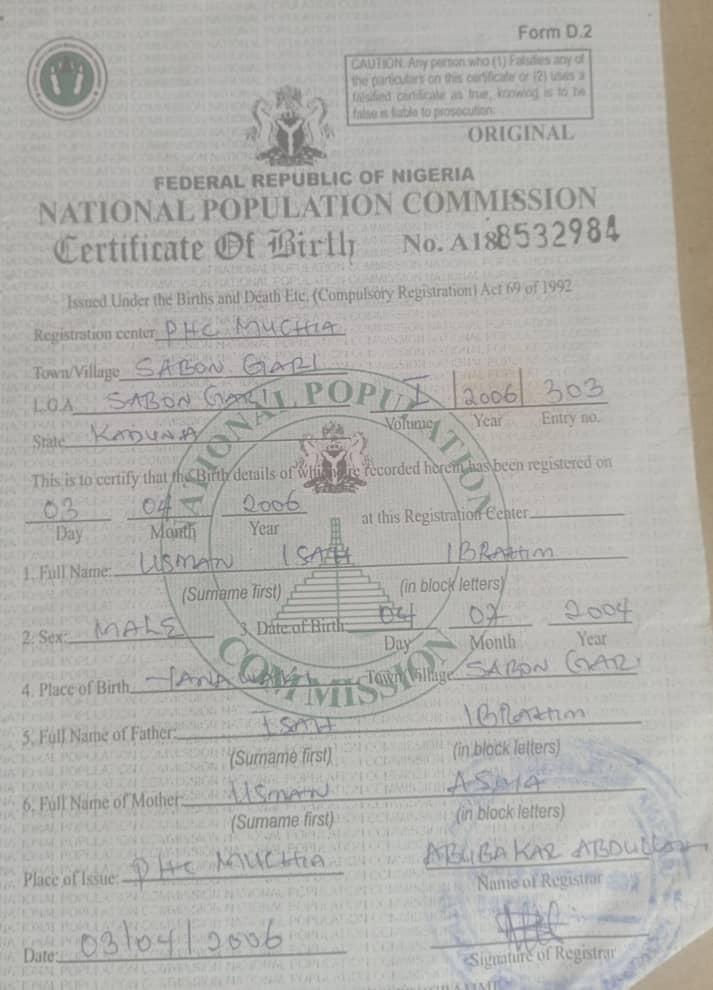 Form D.2
CAUTION: Any person who (1) Falsifies any of
the particulars on this certificate or (2) uses a
falsified certificate as true, knowing is to be
false is liable to prosecution.
ORIGINAL
FEDERAL REPUBLIC OF NIGERIA
NATIONAL POPULATION COMMISSION
Certificate Of Birth No. A188532984
Issued Under the Births and Death Etc. (Compulsory Registration) Act 69 of 1992
Registration center PHC MUCHIA
Town/Village SABON GARI
L.G.A SABON GARI I 2006 303
Volume Year Entry no.
State KADUNA
This is to certify that the Birth details of which are recorded herein has been registered on
03 04 2006 at this Registration Center
Day Month Year
1. Full Name: USMAN ISAH IBRAHIM
(Surname first) (in block letters)
2. Sex: MALE 3. Date of Birth 04 07 2004
Day Month Year
4. Place of Birth Town/Village SABON GARI
5. Full Name of Father: ISAH IBRAHIM
(Surname first) (in block letters)
6. Full Name of Mother: USMAN ASMA
(Surname first) (in block letters)
Place of Issue: PHC MUCHIA ABUBAKAR ABDULLAH
Name of Registrar
Date: 03/04/2006
Signature of Registrar
NATIONAL POPULATION COMMISSION